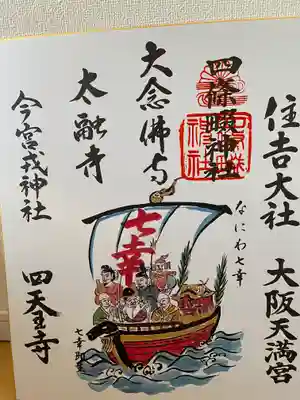 住吉大社
大阪天満宮
なにわ七幸
四條畷神社
大念佛寺
太融寺
今宮戎神社
四天王寺
七幸